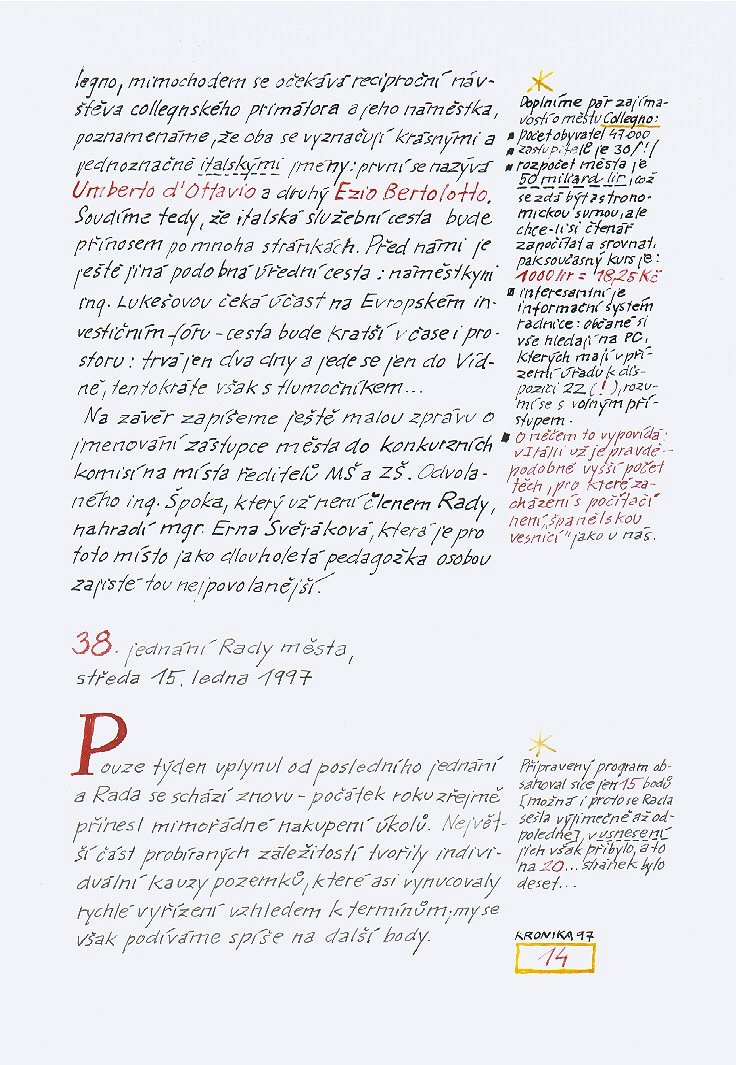 legno, mimochodem se očekává reciproční náv-
štěva collegnského primátora a jeho náměstka,
poznamenáme, že oba se vyznačují krásnými a
jednoznačně italskými jmény: první se nazývá
Umberto d'Ottavio a druhý Ezio Bertolotto.
Soudíme tedy, že italská služební cesta bude
přínosem po mnoha stránkách. Před námi je
ještě jiná podobná úřední cesta: náměstkyni
ing. Lukešovou čeká účast na Evropském in-
vestičním fóru - cesta bude kratší v čase i pro-
storu: trvá jen dva dny a jede se jen do Víd-
ně, tentokráte však s tlumočníkem...
Na závěr zapíšeme ještě malou zprávu o
jmenování zástupce města do konkurzních
komisí na místa ředitelů MŠ a ZŠ. Odvola-
ného ing. Špoka, který už není členem Rady,
nahradí mgr. Erna Svěráková, která je pro
toto místo jako dlouholetá pedagožka osobou
zajisté tou nejpovolanější.
Doplníme pár zajíma-
vostí o městu Collegno:
počet obyvatel 47.000
zastupitelé je 30/!/
rozpočet města je
50 miliard lir, což
se zdá být astrono-
mickou sumou, ale
chce-li si čtenář
započítat a srovnat,
pak současný kurs je:
1000 lir = 18,25 Kč
interesantní je
informační systém
radnice: občané si
vše hledají na PC,
kterých mají v pří-
zemí úřadu k dis-
pozici 22 (!), rozu-
mí se s volným pří-
stupem.
O něčem to vypovídá:
v Itálii už je pravdě-
podobně vyšší počet
těch, pro které za-
cházení s počítači
není „španělskou
vesnicí" jako u nás.
38. jednání Rady města,
středa 15. ledna 1997
Pouze týden uplynul od posledního jednání
a Rada se schází znovu - počátek roku zřejmě
přinesl mimořádné nakupení úkolů. Největ-
ší část probíraných záležitostí tvořily indivi-
duální kauzy pozemků, které asi vynucovaly
rychlé vyřízení vzhledem k termínům; my se
však podíváme spíše na další body.
Připravený program ob-
sahoval sice jen 15 bodů
(možná i proto se Rada
sešla výjimečně až od-
poledne), v usnesení
jich však přibylo, a to
na 20... stránek bylo
deset...
KRONIKA 97
14